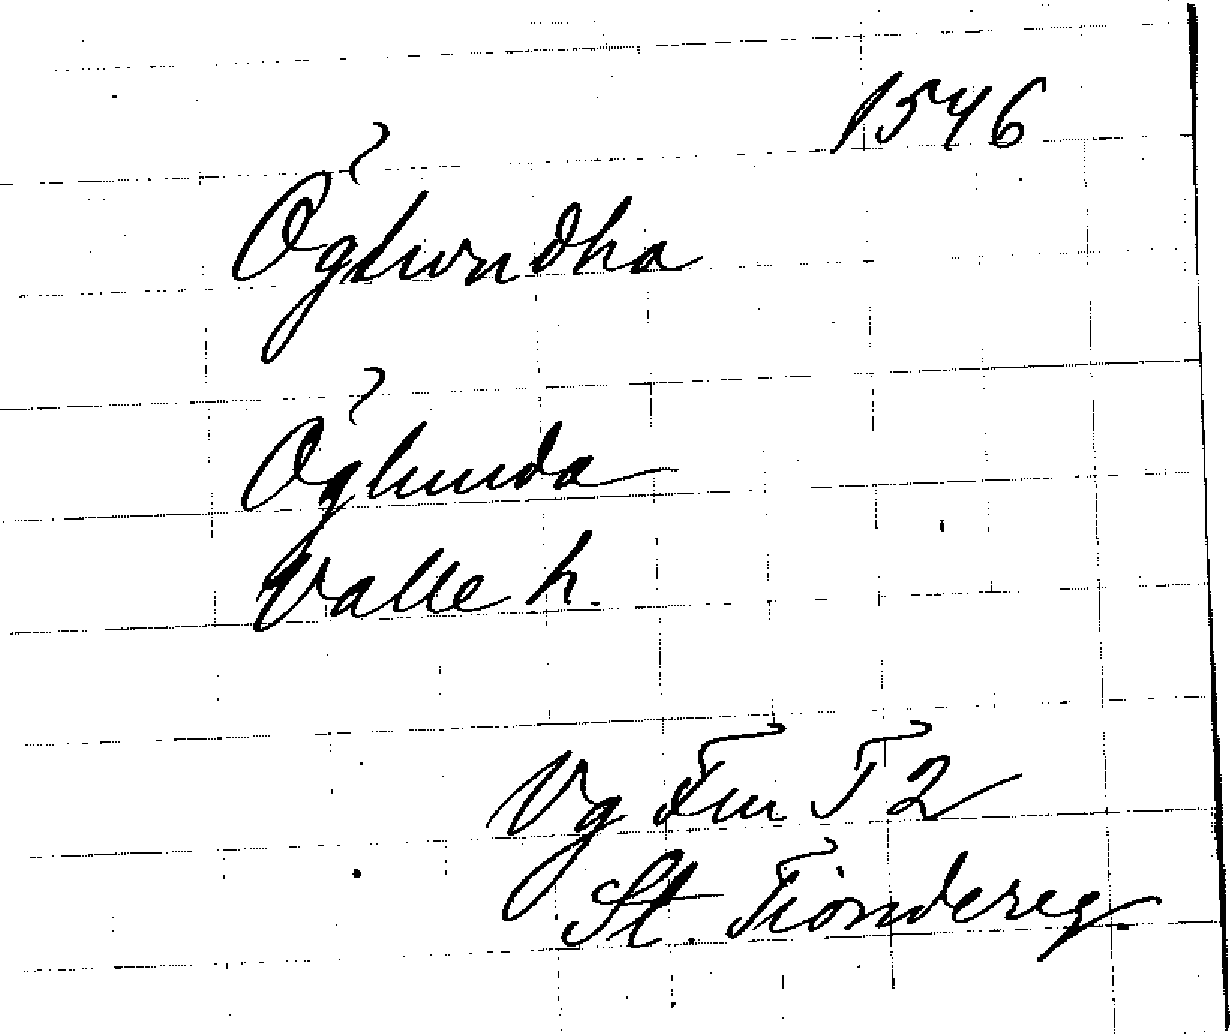 1546
Öglwndha
Öglunda
Valle h.
Vg Fm T 2
St. Tiondereg.